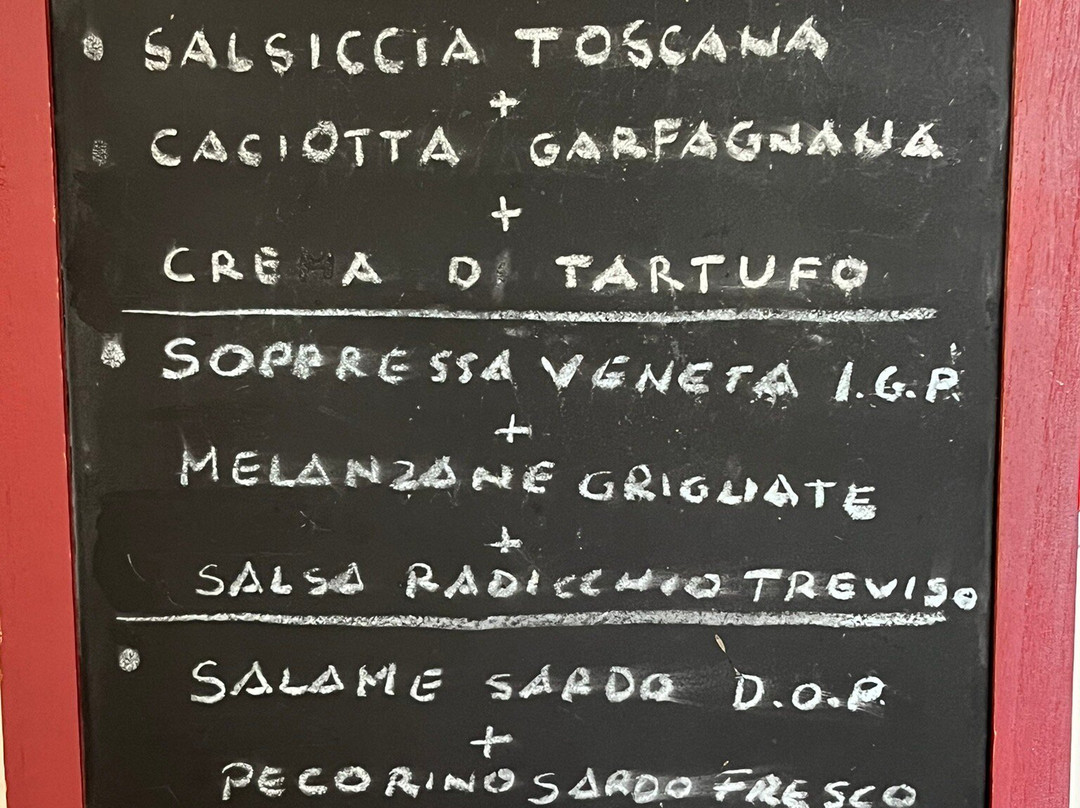 • SALSICCIA TOSCANA
+
• CACIOTTA GARFAGNANA
+
CREMA DI TARTUFO
• SOPPRESSA VENETA I.G.P.
+
MELANZANE GRIGLIATE
+
SALSA RADICCHIO TREVISO
• SALAME SARDO D.O.P.
+
PECORINO SARDO FRESCO